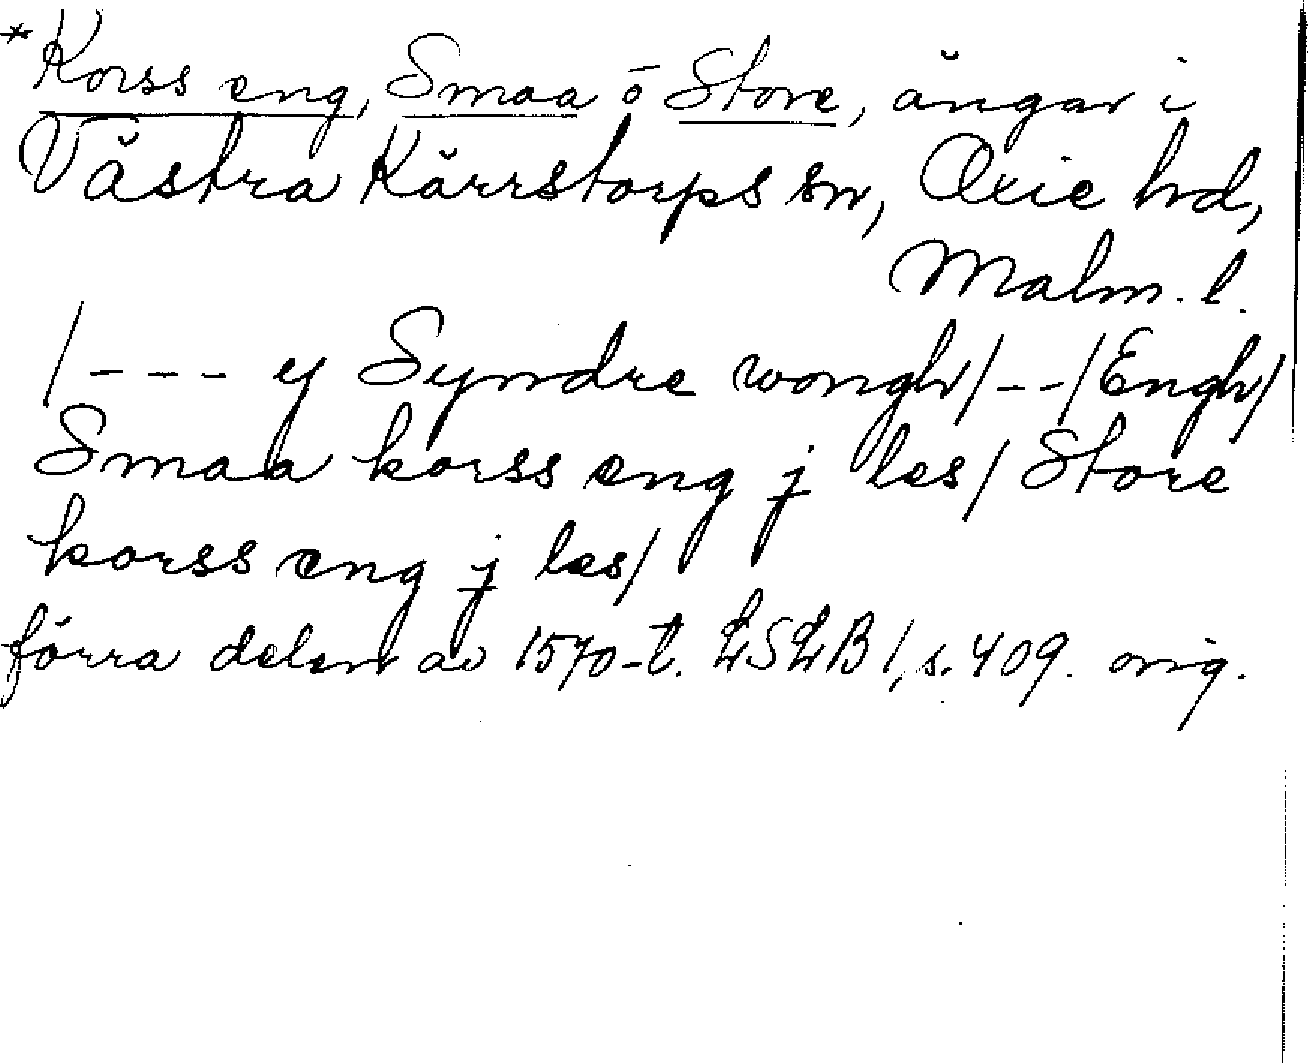 * Korss eng, Smaa o Store, ängar i
Västra Kärrstorps sn, Oxie hd,
Malm. l.
/--- y Syndre wongh/--/Engh/
Smaa korss eng j les/ Store
korss eng j les/
förra delen av 1570-t. LSLB 1, s. 409. orig.